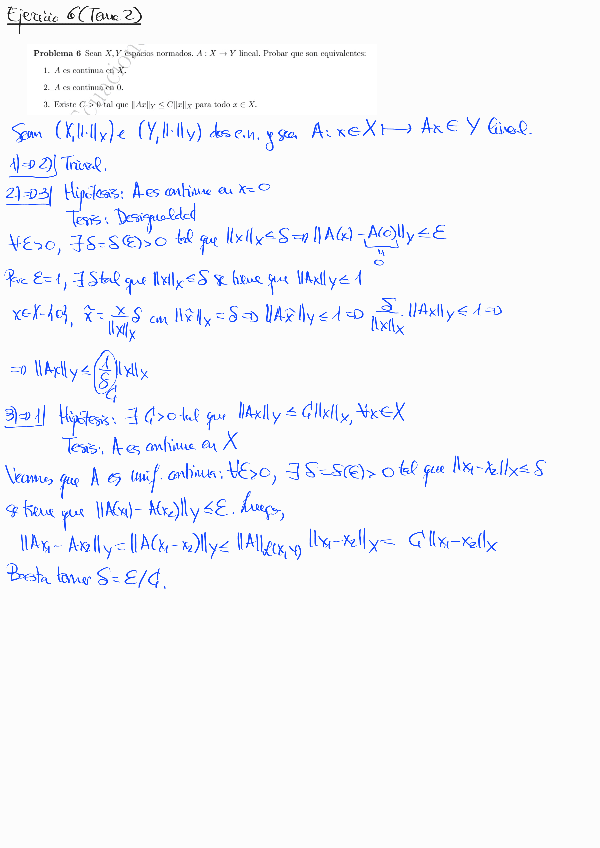 Ejercicio 6 (Tema 2)
Problema 6 Sean X, Y espacios normados. A : X → Y lineal. Probar que son equivalentes:
1. A es continua en X.
2. A es continua en 0.
3. Existe C > 0 tal que ‖Ax‖_Y ≤ C‖x‖_X para todo x ∈ X.
Sean (X, ‖·‖_X) e (Y, ‖·‖_Y) dos e.n. y sea A: x ∈ X ↦ Ax ∈ Y lineal.
1) ⇒ 2) Trivial.
2) ⇒ 3) Hipótesis: A es continua en x = 0
Tesis: Desigualdad
∀ε > 0, ∃ δ = δ(ε) > 0 tal que ‖x‖_X ≤ δ ⇒ ‖A(x) - A(0)‖_Y ≤ ε
0
Para ε = 1, ∃ δ tal que ‖x‖_X ≤ δ se tiene que ‖Ax‖_Y ≤ 1
x ∈ X - {0}, x̃ = x/‖x‖_X δ con ‖x̃‖_X = δ ⇒ ‖Ax̃‖_Y ≤ 1 ⇒ δ/‖x‖_X · ‖Ax‖_Y ≤ 1 ⇒
⇒ ‖Ax‖_Y ≤ (1/δ) ‖x‖_X
C
3) ⇒ 1) Hipótesis: ∃ C > 0 tal que ‖Ax‖_Y ≤ C‖x‖_X, ∀x ∈ X
Tesis: A es continua en X
Veamos que A es unif. continua: ∀ε > 0, ∃ δ = δ(ε) > 0 tal que ‖x₁ - x₂‖_X ≤ δ
se tiene que ‖A(x₁) - A(x₂)‖_Y ≤ ε. Luego,
‖Ax₁ - Ax₂‖_Y = ‖A(x₁ - x₂)‖_Y ≤ ‖A‖_ℒ(X,Y) ‖x₁ - x₂‖_X = C‖x₁ - x₂‖_X
Basta tomar δ = ε/C.